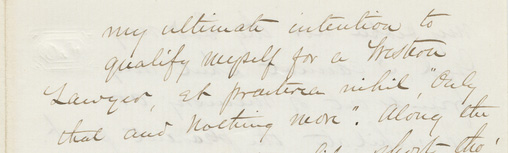 my ultimate intention to
qualify myself for a Western
Lawyer, et praeterea nihil, "Only
that and Nothing more". Along the
short tho'